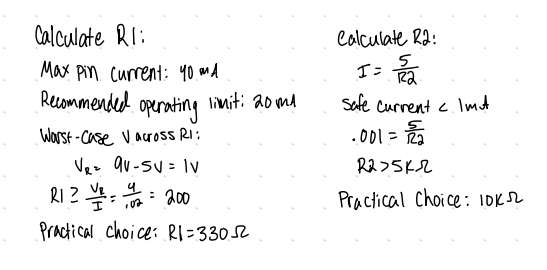 Calculate R1:
Max pin current: 40 mA
Recommended operating limit: 20 mA
Worst-case V across R1:
VR = 9V - 5V = 1V
R1 ≥ VR/I = 4/.02 = 200
Practical choice: R1 = 330 Ω
Calculate R2:
I = 5/R2
Safe current < 1mA
.001 = 5/R2
R2 > 5KΩ
Practical Choice: 10KΩ